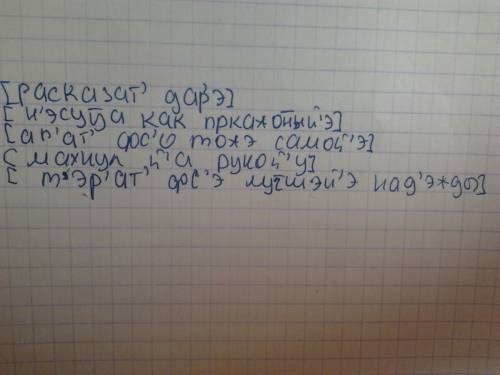 [расказат' дар'э]
[н'эсуца как пркахоный'э]
[ап'ат' фс'о тожэ самоц'э]
[махнул н'а рукоц'у]
[т'эр'ат' фс'э лучшэй'э над'эжды]